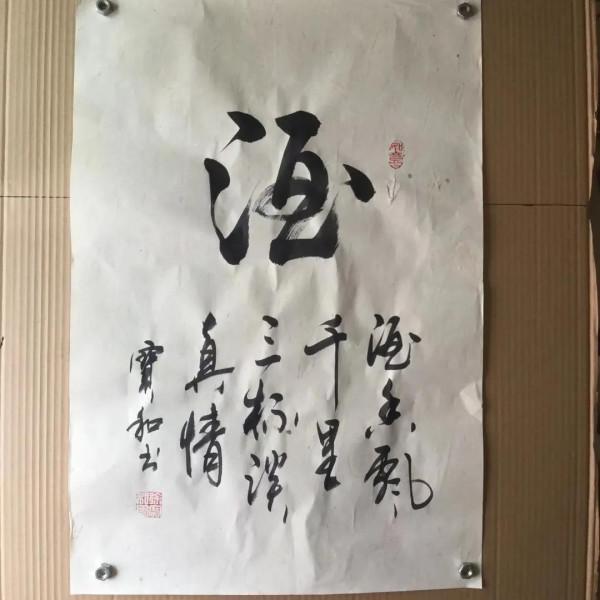 酒
酒香飘
千里
三杯谈
真情
寶和书